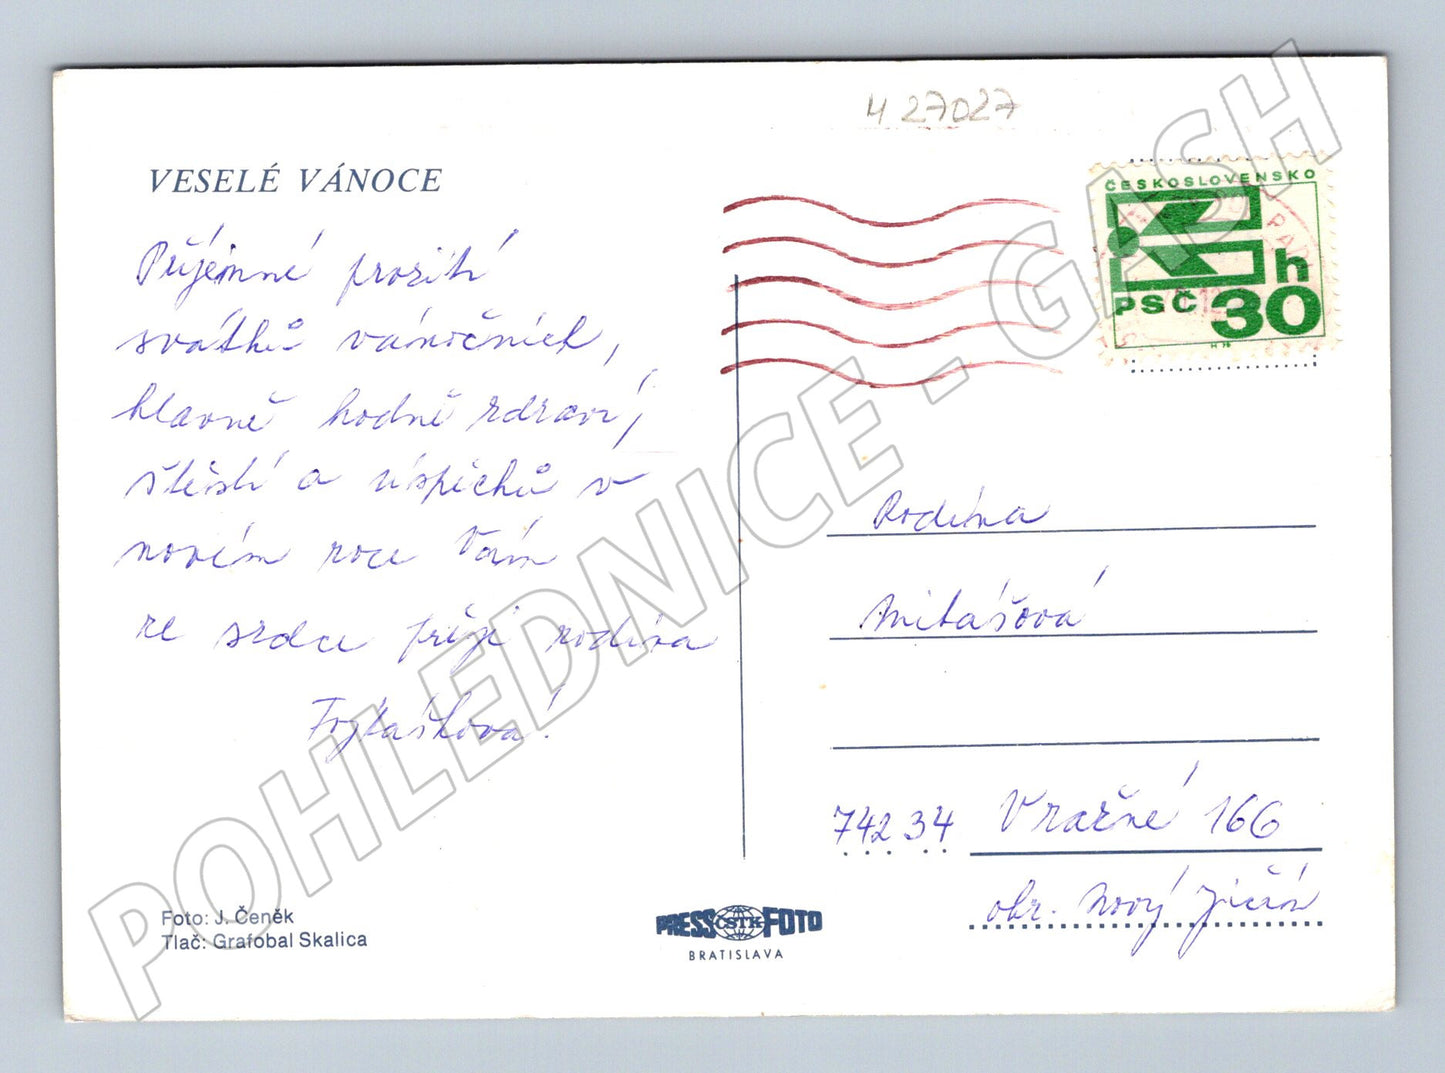 4 27027
VESELÉ VÁNOCE
Příjemné prožití
svátků vánočních,
hlavně hodně zdraví,
štěstí a úspěchů v
novém roce Vám
ze srdce přejí rodina
Fojkášková!
ČESKOSLOVENSKO
h
PSČ 30
Rodina
Mitášová
742 34 Vražné 166
okr. Nový Jičín
Foto: J. Čeněk
Tlač: Grafobal Skalica
PRESS ČSTK FOTO
BRATISLAVA
POHLEDNICE - GASH